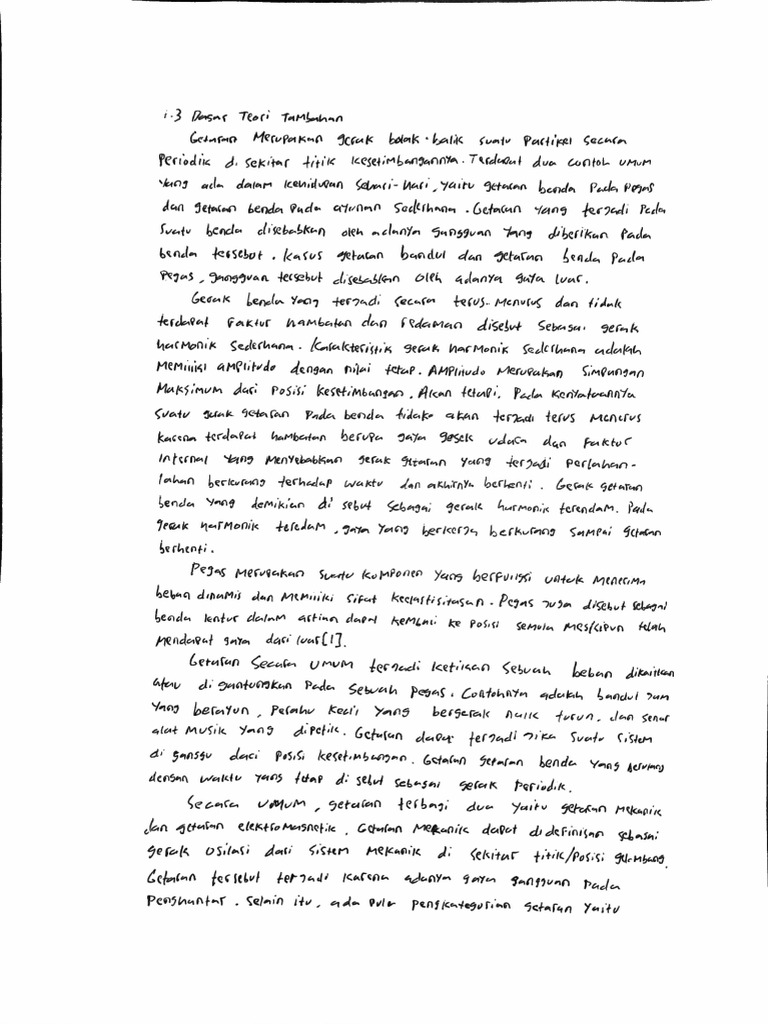 1.3 Dasar Teori Tambahan
Getaran Merupakan gerak bolak-balik suatu Partikel secara
Periodik di sekitar titik kesetimbangannya. Terdapat dua contoh umum
yang ada dalam kehidupan sehari-hari, yaitu getaran benda Pada Pegas
dan getaran benda Pada ayunan sederhana. Getaran yang terjadi Pada
suatu benda disebabkan oleh adanya gangguan yang diberikan Pada
benda tersebut. kasus getaran bandul dan getaran benda Pada
Pegas, gangguan tersebut disebabkan oleh adanya gaya luar.
Gerak benda yang terjadi secara terus-Menurus dan tidak
terdapat Faktur hambatan dan redaman disebut sebagai gerak
harmonik sederhana. Karakteristik gerak harmonik sederhana adalah
Memiliki amplitudo dengan nilai tetap. Amplitudo Merupakan Simpangan
Maksimum dari Posisi kesetimbangan. Akan tetapi, Pada kenyataannya
suatu gerak getaran Pada benda tidak akan terjadi terus Menerus
karena terdapat hambatan berupa gaya gesek udara dan Faktur
Internal yang Menyebabkan gerak getaran yang terjadi Perlahan-
lahan berkurang terhadap waktu dan akhirnya berhenti. Gerak getaran
benda yang demikian di sebut sebagai gerak harmonik terendam. Pada
gerak harmonik teredam, gaya yang berkerja berkurang sampai getaran
berhenti.
Pegas Merupakan suatu komponen yang berfungsi untuk Menerima
beban dinamis dan Memiliki sifat keelastisitasan. Pegas juga disebut sebagai
benda lentur dalam artian dapat kembali ke Posisi semula Meskipun telah
Mendapat gaya dari luar[1].
Getaran Secara umum terjadi ketikan sebuah beban dikaitkan
atau di gantungkan Pada sebuah Pegas. Contohnya adalah bandul jam
yang berayun, Perahu kecil yang bergerak naik turun, dan senar
alat Musik yang dipetik. Getaran dapat terjadi jika suatu sistem
di ganggu dari Posisi kesetimbangan. Getaran getaran benda yang berulang
dengan waktu yang tetap di sebut sebagai gerak Periodik.
Secara umum, getaran terbagi dua yaitu getaran Mekanik
dan getaran elektromagnetik. Getaran Mekanik dapat didefinisan sebagai
gerak osilasi dari sistem Mekanik di sekitar titik/Posisi gelombang.
Getaran tersebut terjadi karena adanya gaya gangguan Pada
Penghantar. Selain itu, ada Pula Pengkategorian getaran yaitu